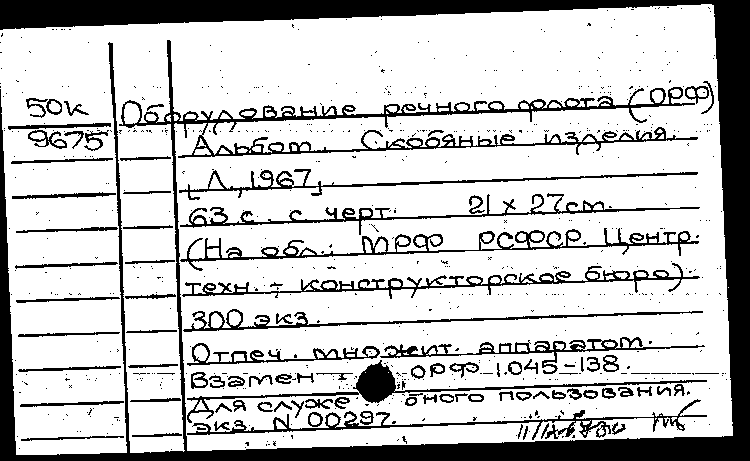 50к Оборудование речного флота (ОРФ)
9675 Альбом. Скобяные изделия.
[Л., 1967]
63 с. с черт. 21 x 27см.
(На обл.: МРФ РСФСР. Центр.
техн. - конструкторское бюро).
300 экз.
Отпеч. множит. аппаратом.
Взамен ОРФ 1.045-138.
Для служебного пользования.
экз. N 00297.